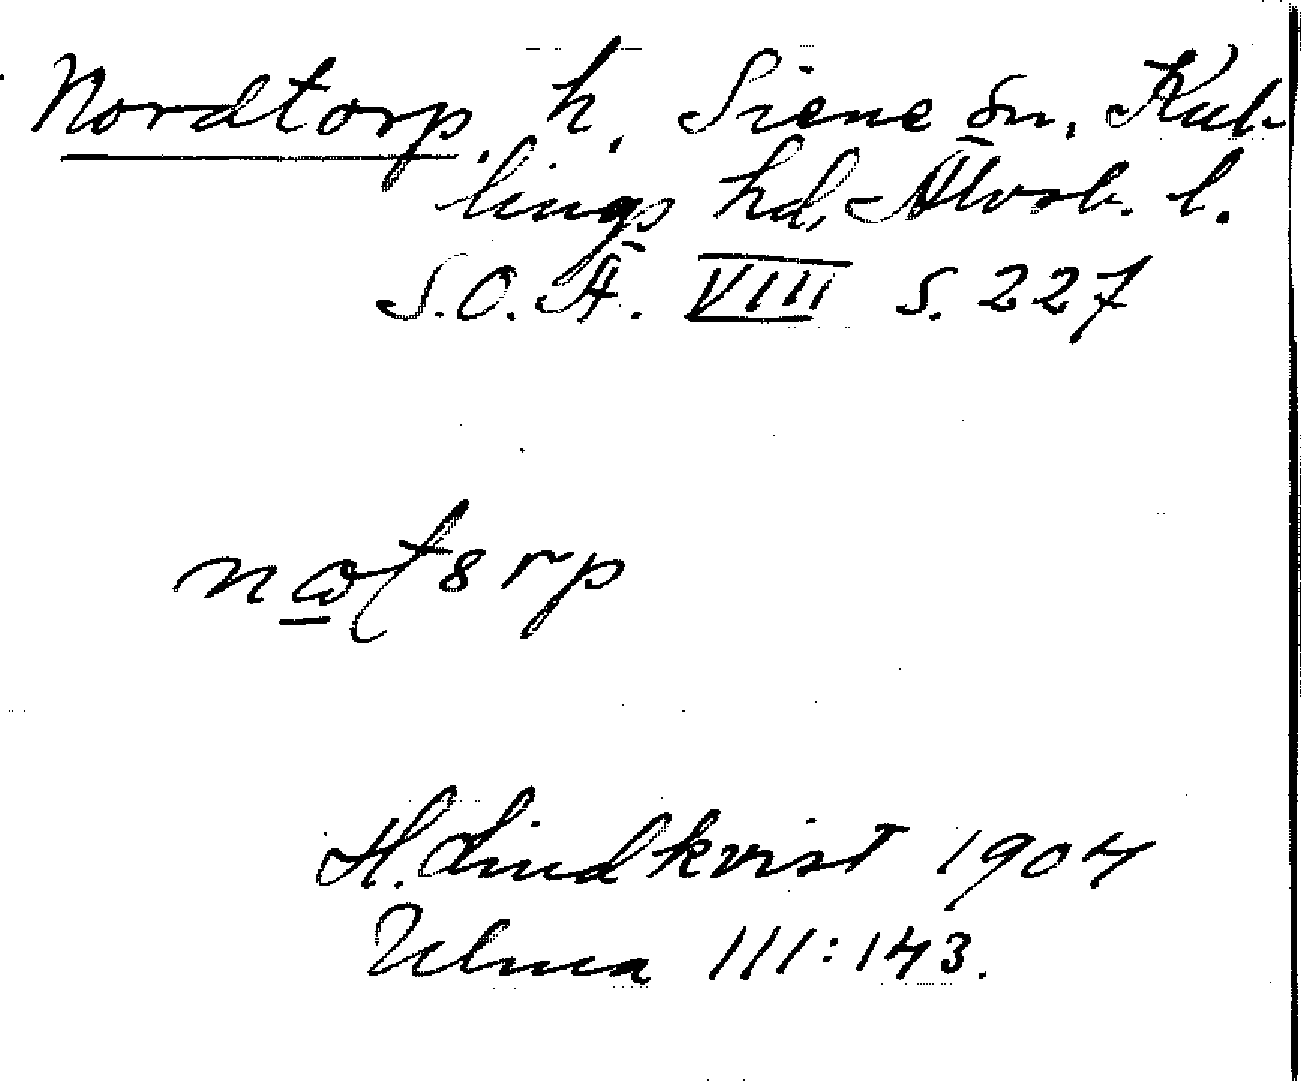 Nordtorp, h. Siene sn, Kul-
lings hd, Älvsb. l.
S.O.Ä. VIII s. 227
H. Lindkvist 1904
Ulma 111:143.